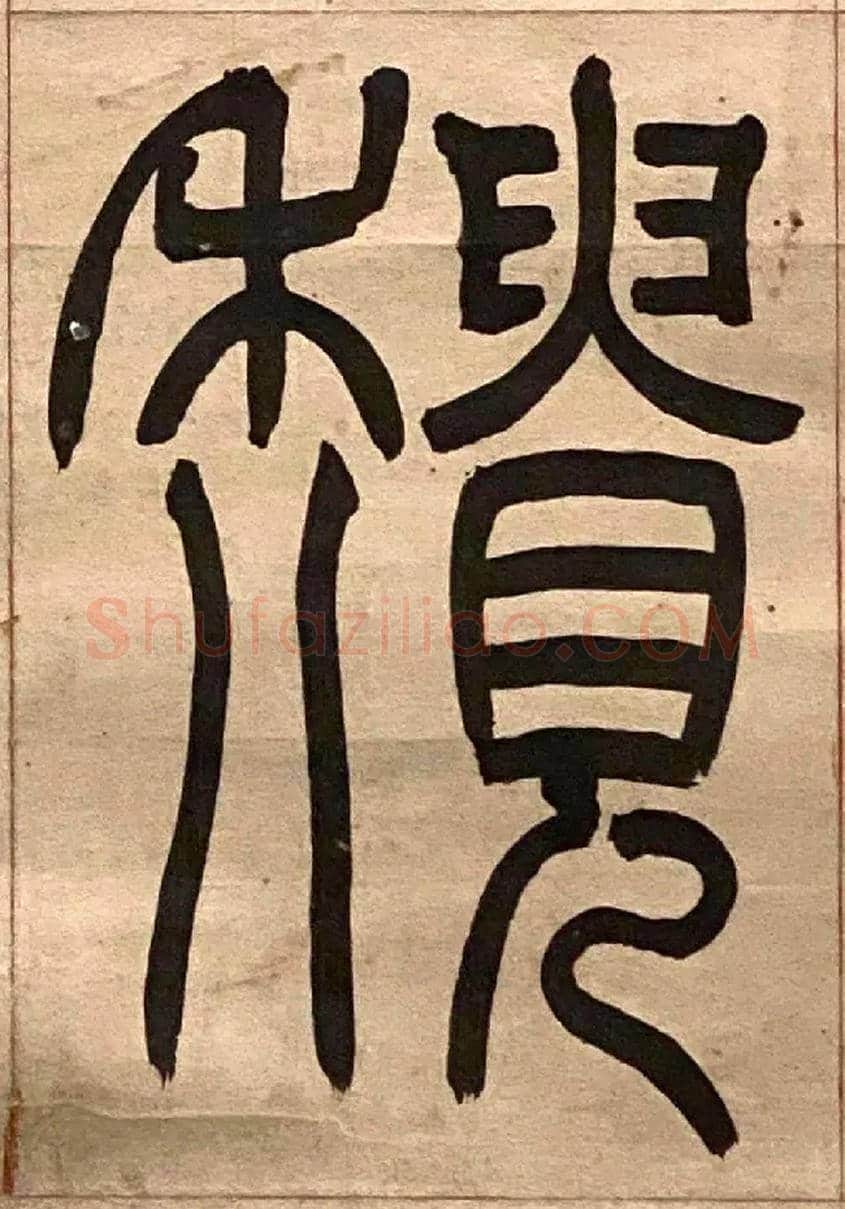 穨
Shufaziliao.COM